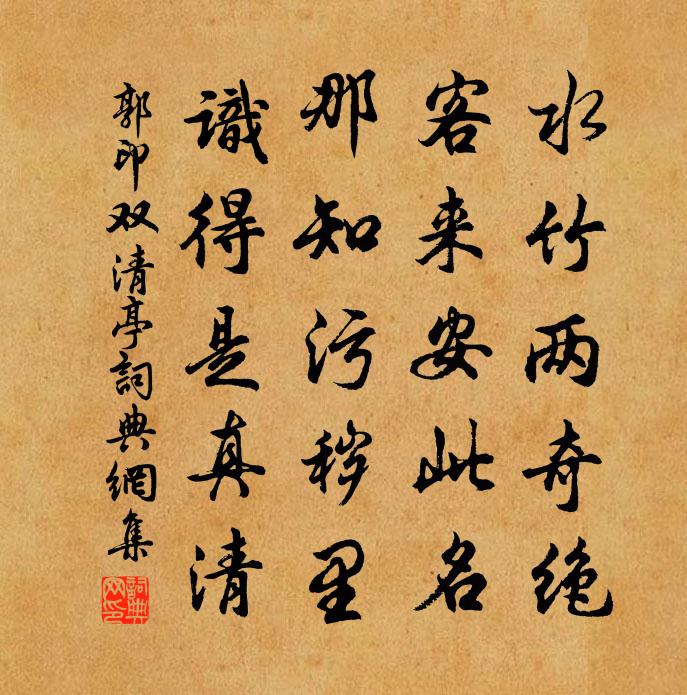 水竹两奇绝
客来安此名
那知污秽里
識得是真清
郭印双清亭詞典網集
詞典网印